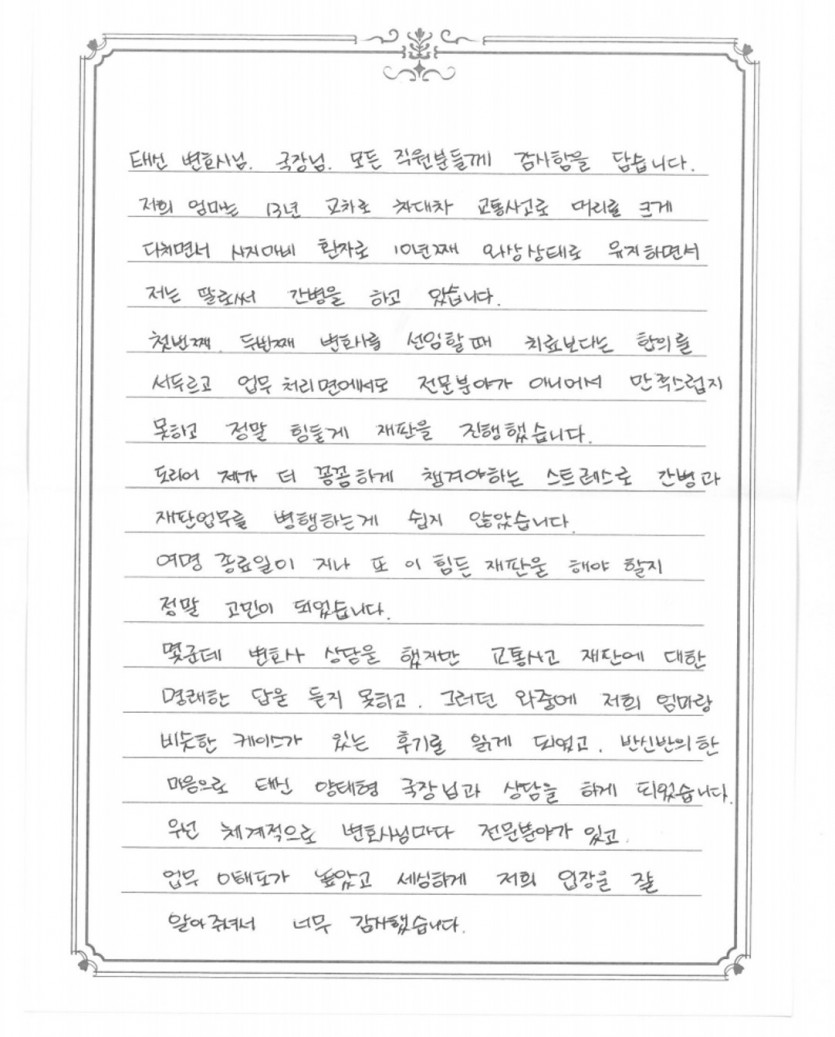 태신 변호사님. 국장님. 모든 직원분들께 감사함을 담습니다.
저희 엄마는 13년 교차로 차대차 교통사고로 머리를 크게
다치면서 사지마비 환자로 10년째 와상상태로 유지하면서
저는 딸로써 간병을 하고 있습니다.
첫번째, 두번째 변호사를 선임할때 치료보다는 합의를
서두르고 업무 처리면에서도 전문분야가 아니여서 만족스럽지
못하고 정말 힘들게 재판을 진행했습니다.
도리어 제가 더 꼼꼼하게 챙겨야하는 스트레스로 간병과
재판업무를 병행하는게 쉽지 않았습니다.
여명 종료일이 지나 또 이 힘든 재판을 해야 할지
정말 고민이 되었습니다.
몇군데 변호사 상담을 했지만 교통사고 재판에 대한
명쾌한 답을 듣지 못하고. 그러던 와중에 저희 엄마랑
비슷한 케이스가 있는 후기를 읽게 되었고. 반신반의한
마음으로 태신 양태형 국장님과 상담을 하게 되었습니다.
우선 체계적으로 변호사님마다 전문분야가 있고.
업무 이해도가 높았고 세심하게 저희 입장을 잘
알아주셔서 너무 감사했습니다.